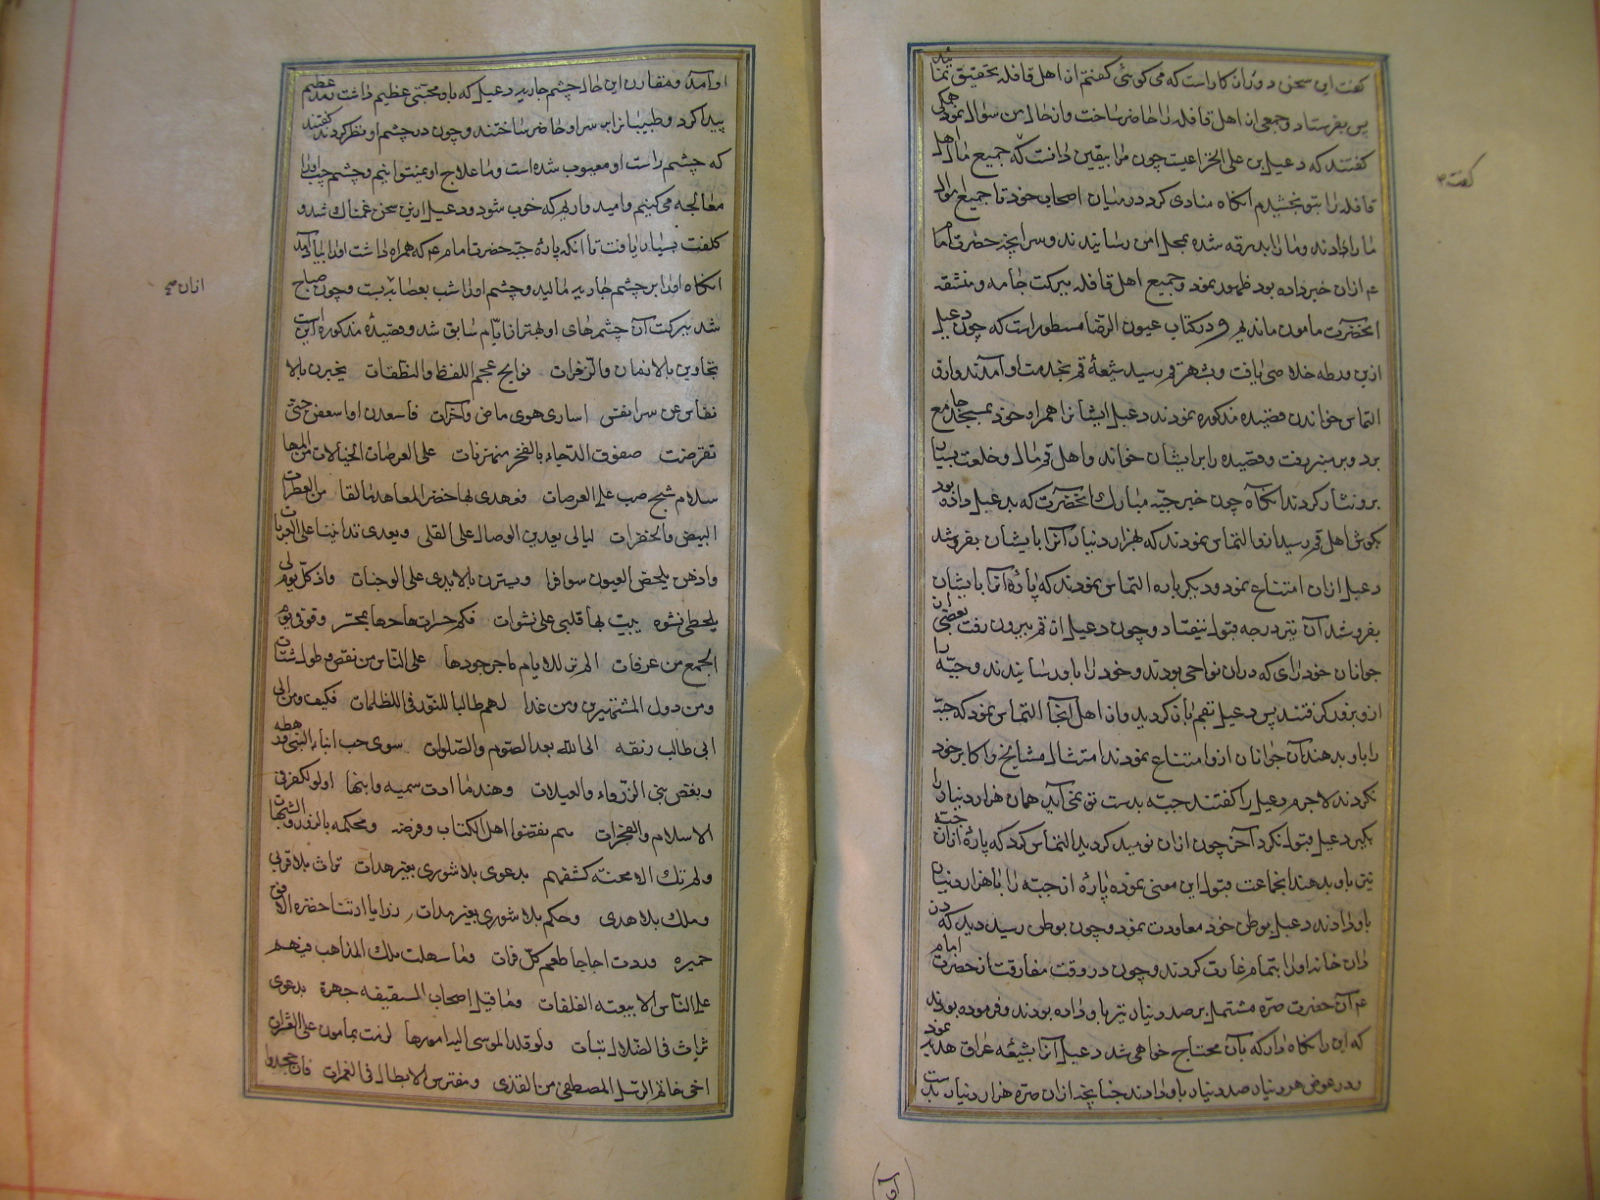 گفت این سخن دور از کار است که می گوئی گفتم از اهل قافله تحقیق نمائید
پس بفرستاد و جمعی از اهل قافله را حاضر ساخت و از حال من سوال نمود همگی
گفتند که دعبل بن علی الخزاعیت چون مرا بیقین دانت گفت که جمیع مال اهل
قافله را بتو بخشیدم آنکاه منادی کرد در میان اصحاب خود تا جمیع اموال
ما را دادند و ما را بدرقه شده بمحل امن رسانیدند و سر آنچه حضرت امام
ع از ان خبر داده بود ظهور نمود و جمیع اهل قافله ببرکت جامه و منشقه
آنحضرت مامون ماندیم و در کتاب عیون الرضا مسطور است که چون دعبل
ازین ورطه خلاصی یافت و بشهر قم رسید شیعهٔ قم بخدمت او آمدند و ازو
التماس خواندن قصیده مذکوره نمودند دعبل ایشانرا همراه خود بمسجد جامع
برد و بر منبر رفت و قصیده را بر ایشان خواند و اهل قم مال و خلعت بسیار
برو نثار کردند آنکاه چون خبر جبّه مبارک آنحضرت که بدعبل داده بود
بکوش اهل قم رسید ازو التماس نمودند که بهزار دنیار آنرا بایشان بفروشد
دعبل ازان امتناع نمود و دیکر باره التماس نمودند که پارهٔ آنرا بایشان
بفروشد آن نیز درجه قبول نیفتاد و چون دعبل از قم بیرون رفت بعضی از
جوانان خود رای که دران نواحی بودند و خود را باو رسانیدند و جبّه را
ازو بزور گرفتند پس دعبل بقم باز کردید و از اهل آنجا التماس نمود که جبّه
را باو بدهند آن جوانان ازو امتناع نمودند امتثال مشایخ و اکابر خود
نکردند لاجرم دعبل را کفتند جبّه بدست تو نمی آید همان هزار دنیار را
بگیر دعبل قبول نکرد آخر چون ازان نومید کردید التماس کرد که پارهٔ ازان جبّه
نیز باو بدهند آنجماعت قبول این معنی نموده پارهٔ از جبّه را با هزار دنیار
باو دادند دعبل بوطن خود معاودت نمود و چون بوطن رسید دید که دزدان
خانه او را بتمام غارت کردند و چون در وقت مفارقت از حضرت امام
ع آن حضرت صرّه مشتمل بر صد دنیار نیز باو داده بودند و فرموده بودند
که این را نکاه دار که بآن محتاج خواهی شد دعبل آنرا بشیعه عراق هدیه نمود
و در عوض هر دنیار صد دنیار باو دادند چنانچه ازان صرّه هزار دنیار بدست
گفت
او آمد و مقارن این حال چشم جاریه دعبل که باو محبتی عظیم داشت رمد عظیم
پیدا کرد و طبیبانرا بر سر او حاضر ساختند و چون در چشم او نظر کردند گفتند
که چشم راست او معیوب شده است و ما علاج او نمیتوانیم و چشم چپ او را
معالجه می کنیم و امید واریم که خوب شود و دعبل ازین سخن غمناک شد و
کلفت بسیار یافت تا انکه پارهٔ جبّه حضرت امام ع که همراه داشت او را بیاد آمد
آنکاه او را بر چشم جاریه مالید و چشم او را شب بعصابه بست و چون صباح
شد ببرکت آن چشمهای او بهتر از ایّام سابق شد و قصیدهٔ مذکوره این است
تجاوبن بالارنان والزفرات نوایح عجم اللفظ والنطقات یخبرن بالا
نفاس عن سر انفس اساری هوی ماض و آخرآت فاسعدن او اسعفن حتی
تقرضت صفوف الدجاء بالفجر منهزمات علی العرصات الخالات من المها
سلام شبح صب علی العرصات فعهدی بها خضر المعاهد مالفا من العطرات
البیض والخضرات لیالی یعدین الوصال علی القلی و یعدی تدانینا علی الغربات
واذهن یلحضن العیون سوافرا ویسترن بالایدی علی الوجنات واذ کل یوم لی
بلحظی نشوه یبیت بها قلبی علی نشوات فکم حسرات هاجها بمحسّر وقوفی یوم
الجمع من عرفات الم تر للایام ما جر جودها علی الناس من نقص وطول شتات
ومن دول المستهزین ومن غدا لهم طالبا للنور فی الظلمات فکیف ومن انی
ابی طالب زنفه الی الله بعد الصّوم والصّلوات سوی حب ابناء النبی ورهطه
وبغض بنی الزرقاء والعبلات وهند ما ادت سمیه وابنها اولو لکفر فی
الاسلام والفجرات هم نقضوا اهل الکتاب وفرضه ومحکمه بالزور والشبهات
ولم تک الا محنته کشفهم بدعوی بلا شوری بغیر هدات تراث بلا قربی
وملک بلا هدی وحکم بلا شوری بغیر هدات رزایا ارتنا خضره الافق
حمیره وردت اجاجا طعم کلّ فرات وما سهلت تلک المذاهب فیهم
علی النّاس الا بیعته الفلتات وما قیل اصحاب السقیفه جهرة بدعوی
تراث فی الضلال تبات ولو قلدا لموسی الیه امورها لزمت بمامون علی العثرات
اخی خاتم الرسل المصطفی من القذی ومفترس الابطال فی الغمرات فان جحدوا
ازان